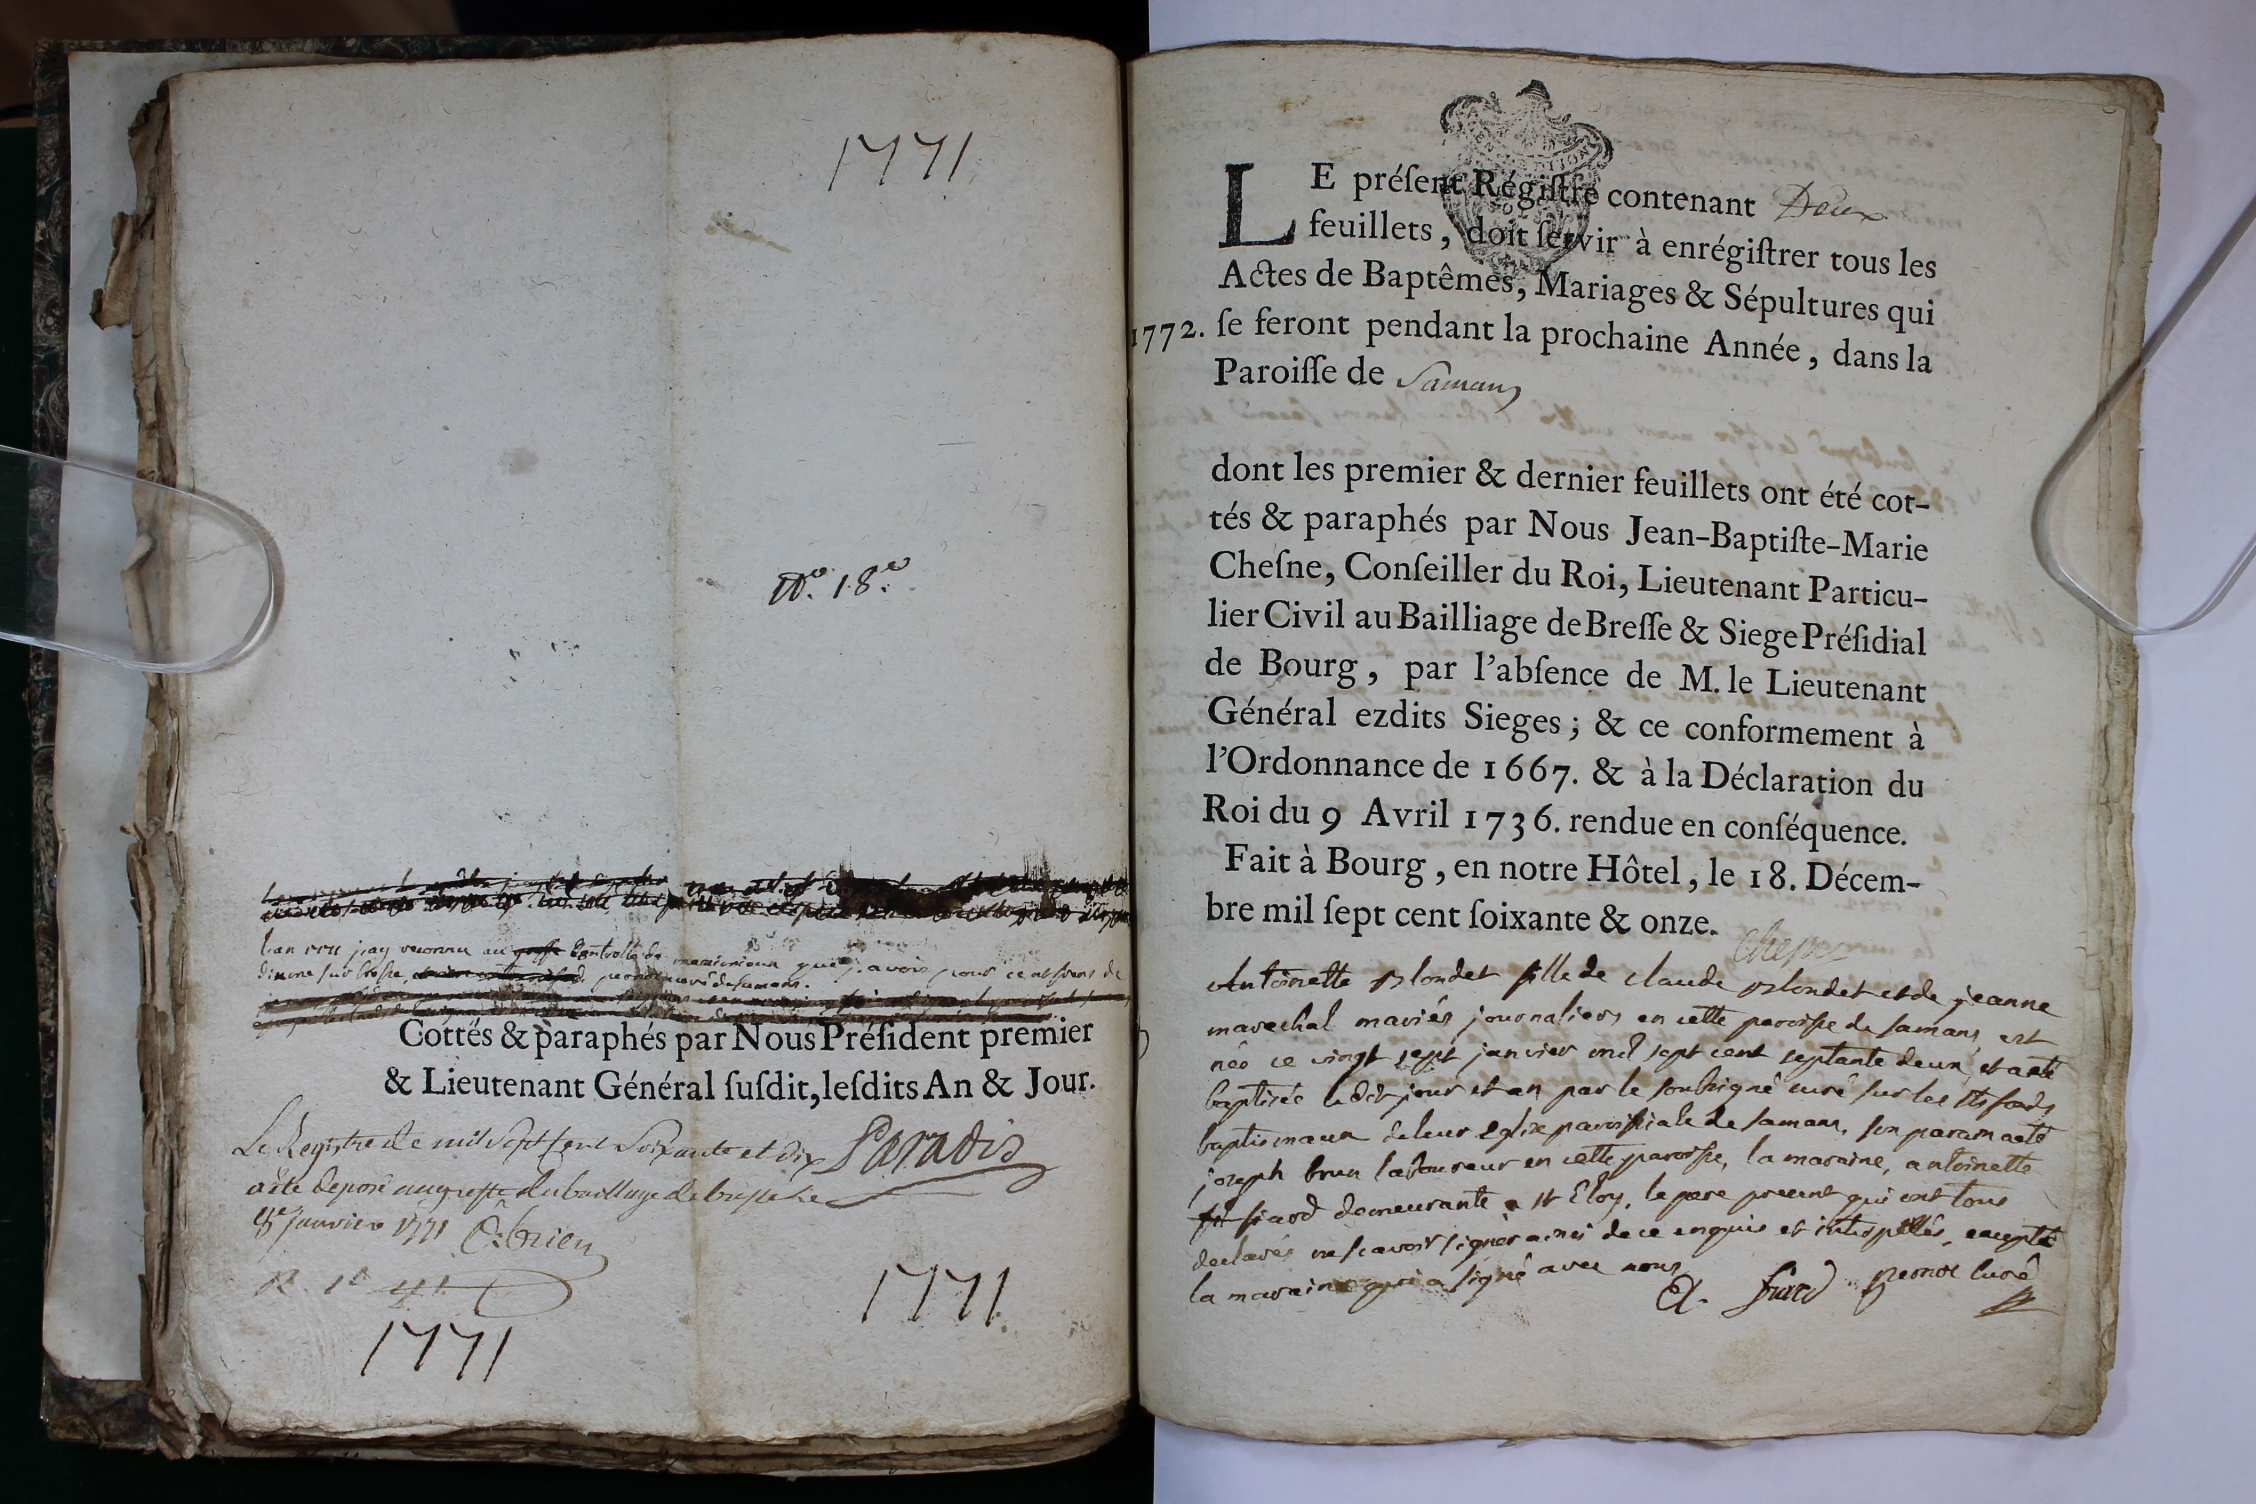 1771
N.o 18.e
L'an 1771 j'ay reconnu au greffe Controlle de que j'avois pour cent francs de
dixme sur brosse, pernot curé de samans.
Cottës & paraphés par Nous Préſident premier
& Lieutenant Général ſuſdit, leſdits An & Jour.
Le Registre de mil sept Cent Soixante et dix Paradis
a été deposé au greffe du bailliage de bresse Le
janvier 1771
1771
1771
LE préſent Régiſtre contenant Deux
feuillets, doit ſervir à enrégiſtrer tous les
Actes de Baptêmes, Mariages & Sépultures qui
1772. ſe feront pendant la prochaine Année, dans la
Paroiſſe de Samans
dont les premier & dernier feuillets ont été cot-
tés & paraphés par Nous Jean-Baptiſte-Marie
Cheſne, Conſeiller du Roi, Lieutenant Particu-
lier Civil au Bailliage de Breſſe & Siege Préſidial
de Bourg, par l'abſence de M. le Lieutenant
Général ezdits Sieges ; & ce conformement à
l'Ordonnance de 1667. & à la Déclaration du
Roi du 9 Avril 1736. rendue en conſéquence.
Fait à Bourg, en notre Hôtel, le 18. Décem-
bre mil ſept cent ſoixante & onze.
Chesne
Antoinette blondet fille de claude blondet et de jeanne
marechal mariés journaliers en cette paroisse de samans est
née ce vingt sept janvier mil sept cent septante deux, et a eté
baptisée ledit jour et an par le soubsigné curé sur les sts fonds
baptismaux de leur eglise paroissiale de samans, son parain a eté
joseph brun laboureur en cette paroisse, la maraine, antoinette
fiard demeurante a st Eloy, le pere present qui ont tous
declarés ne scavoir signer ainsi de ce enquis et interpellés, excepté
la maraine qui a signé avec nous
A. fiard pernot Curé